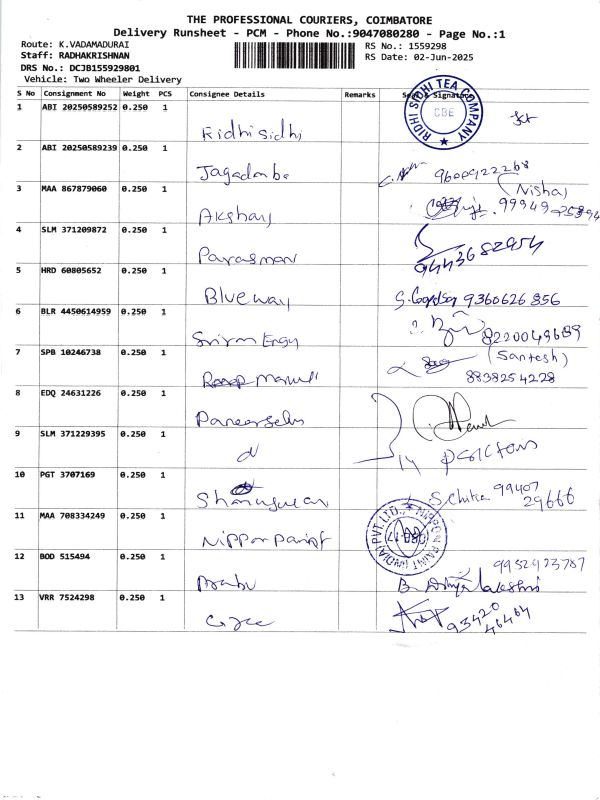 THE PROFESSIONAL COURIERS, COIMBATORE
Delivery Runsheet - PCM - Phone No.:9047080280 - Page No.:1
Route: K.VADAMADURAI
RS No.: 1559298
Staff: RADHAKRISHNAN
RS Date: 02-Jun-2025
DRS No.: DCJB155929801
Vehicle: Two Wheeler Delivery
S No Consignment No Weight PCS Consignee Details Remarks Seal & Signature
1 ABI 20250589252 0.250 1 Ridhi sidhi
RIDHI SIDHI TEA COMPANY
CBE
2 ABI 20250589239 0.250 1 Jagadamba 9600922268
3 MAA 867879060 0.250 1 Akshay (Nisha)
4 SLM 371209872 0.250 1 Parasmani 9443682954
5 HRD 60805652 0.250 1 Blueway 9360626856
6 BLR 4450614959 0.250 1 Sriram Engg 8220049689
7 SPB 10246738 0.250 1 (Santesh)
8838254228
8 EDQ 24631226 0.250 1 Paneerselu
9 SLM 371229395 0.250 1
10 PGT 3707169 0.250 1 99407
29666
11 MAA 708334249 0.250 1 Nippon Paint
NIPPON PAINT (INDIA) PVT. LTD.
12 BOD 515494 0.250 1 Prabu
13 VRR 7524298 0.250 1 93420
46464